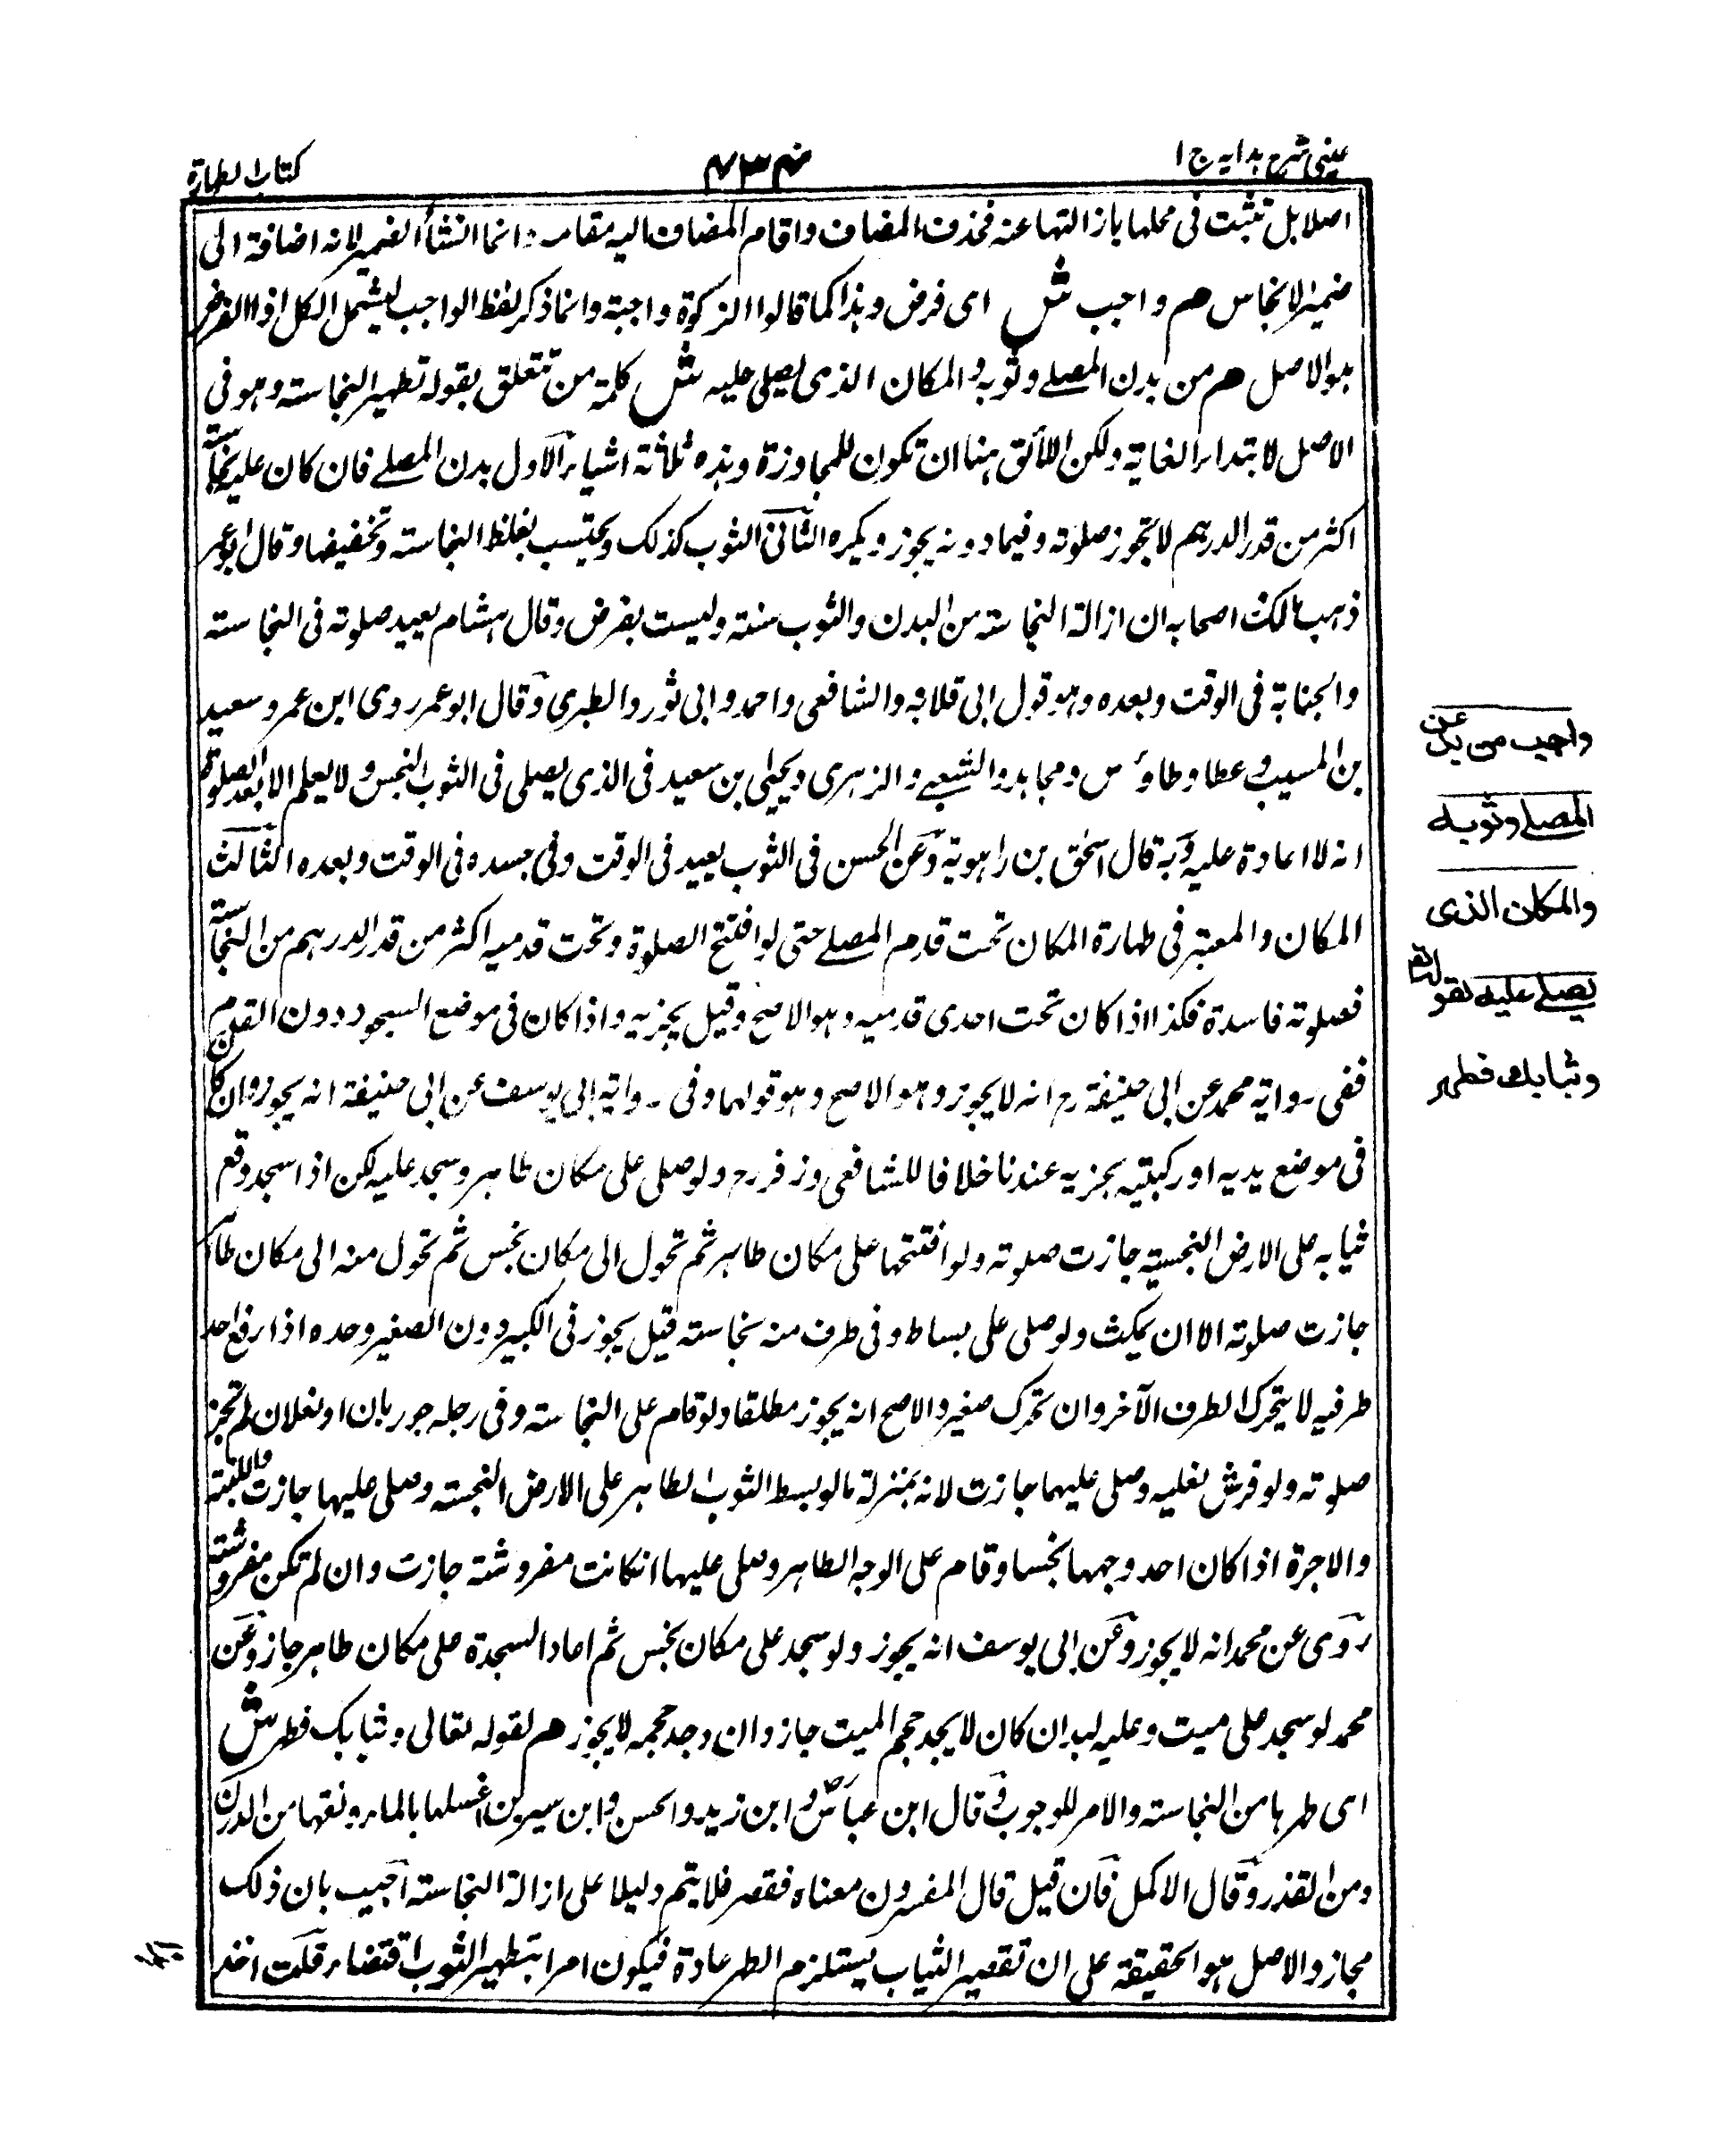 عینی شرح ہدایہ ج ۱
۷۳۴
کتاب الطہارۃ
اصلا بل تثبت فی محلہا بازالتہا عنہ فحذف المضاف واقام المضاف الیہ مقامہ وانما انث الضمیر لانہ اضافۃ الی
ضمیر الانجاس ھم واجب ش ای فرض وہذا کما قالوا الزکوۃ واجبۃ وانما ذکر لفظ الواجب لیشمل الکل اذ الفرض
ہو الاصل ھم من بدن المصلے وثوبہ والمکان الذی یصلی علیہ ش کلمۃ من تتعلق بقولہ تطہیر النجاستہ وہو فی
الاصل لابتداء الغایۃ ولکن اللائق ہنا ان تکون للمجاوزۃ وہذہ ثلاثۃ اشیاء الاول بدن المصلے فان کان علیہ نجاستہ
اکثر من قدر الدرہم لا تجوز صلوتہ وفیما دونہ یجوز ویکرہ الثانی الثوب کذلک ویحتسب بغلظ النجاستہ وتخفیفہا وقال ابو عمر
ذہب مالک اصحابہ ان ازالۃ النجاستہ من البدن والثوب سنتہ ولیست بفرض وقال ہشام یعید صلوتہ فی النجاستہ
والجنابۃ فی الوقت وبعدہ وہو قول ابی قلابہ والشافعی واحمد وابی ثور والطبری وقال ابو عمر روی ابن عمر وسعید
بن المسیب وعطا وطاؤس ومجاہد والشعبے والزہری ویحیی بن سعید فی الذی یصلی فی الثوب النجس ولا یعلم الا بعد الصلوۃ
انہ لا اعادۃ علیہ وبہ قال اسحٰق بن راہویۃ وعن الحسن فی الثوب یعید فی الوقت وفی جسدہ فی الوقت وبعدہ الثالث
المکان والمعتبر فی طہارۃ المکان تحت قدم المصلے حتی لو افتتح الصلوۃ وتحت قدمیہ اکثر من قدر الدرہم من النجاستہ
فصلوتہ فاسدۃ فکذا اذا کان تحت احدی قدمیہ وہو الاصح وقیل یجزیہ واذا کان فی موضع السجود دون القدم
ففی روایۃ محمد عن ابی حنیفۃ رح انہ لا یجوز وہو الاصح وہو قولہما وفی روایۃ ابی یوسف عن ابی حنیفۃ انہ یجوز وان کان
فی موضع یدیہ او رکبتیہ یجزیہ عندنا خلافا للشافعی وزفر رح ولو صلی علی مکان طاہر وسجد علیہ لکن اذا سجد وقع
ثیابہ علی الارض النجستہ جازت صلوتہ ولو افتتحہا علی مکان طاہر ثم تحول الی مکان نجس ثم تحول منہ الی مکان طاہر
جازت صلوتہ الا ان یمکث ولو صلی علی بساط وفی طرف منہ نجاستہ قیل یجوز فی الکبیر دون الصغیر وحدہ اذا رفع احد
طرفیہ لا یتحرک الطرف الآخر وان تحرک صغیر والاصح انہ یجوز مطلقا ولو قام علی النجاستہ وفی رجلہ جوربان او نعلان لم تجز
صلوتہ ولو فرش نعلیہ وصلی علیہما جازت لانہ بمنزلۃ مالو بسط الثوب الطاہر علی الارض النجستہ وصلی علیہا جازت واللبنۃ
والاجرۃ اذا کان احد وجہہا نجسا وقام علی الوجہ الطاہر وصلی علیہا ان کانت مفروشتہ جازت وان لم تکن مفروشتہ
روی عن محمد انہ لا یجوز وعن ابی یوسف انہ یجوز ولو سجد علی مکان نجس ثم اعاد السجدۃ علی مکان طاہر جاز وعن
محمد لو سجد علی میت وعلیہ لبد ان کان لا یجد حجم المیت جاز وان وجد حجمہ لا یجوز ھم لقولہ تعالی وثیابک فطہر ش
ای طہرہا من النجاستہ والامر للوجوب وقال ابن عباس رض وابن زید والحسن وابن سیرین اغسلہا بالماء ونقہا من الدرن
ومن القذر وقال الاکمل فان قیل قال المفسرون معناہ فقصر فلا یتم دلیلا علی ازالۃ النجاستہ اجیب بان ذلک
مجاز والاصل ہو الحقیقۃ علی ان تقصیر الثیاب یستلزم الطہر عادۃ فیکون امرا بتطہیر الثوب اقتضاء قلت اخذ
واجب من بدن
المصلے وثوبہ
والمکان الذی
یصلے علیہ لقولہ تعالی
وثیابک فطہر